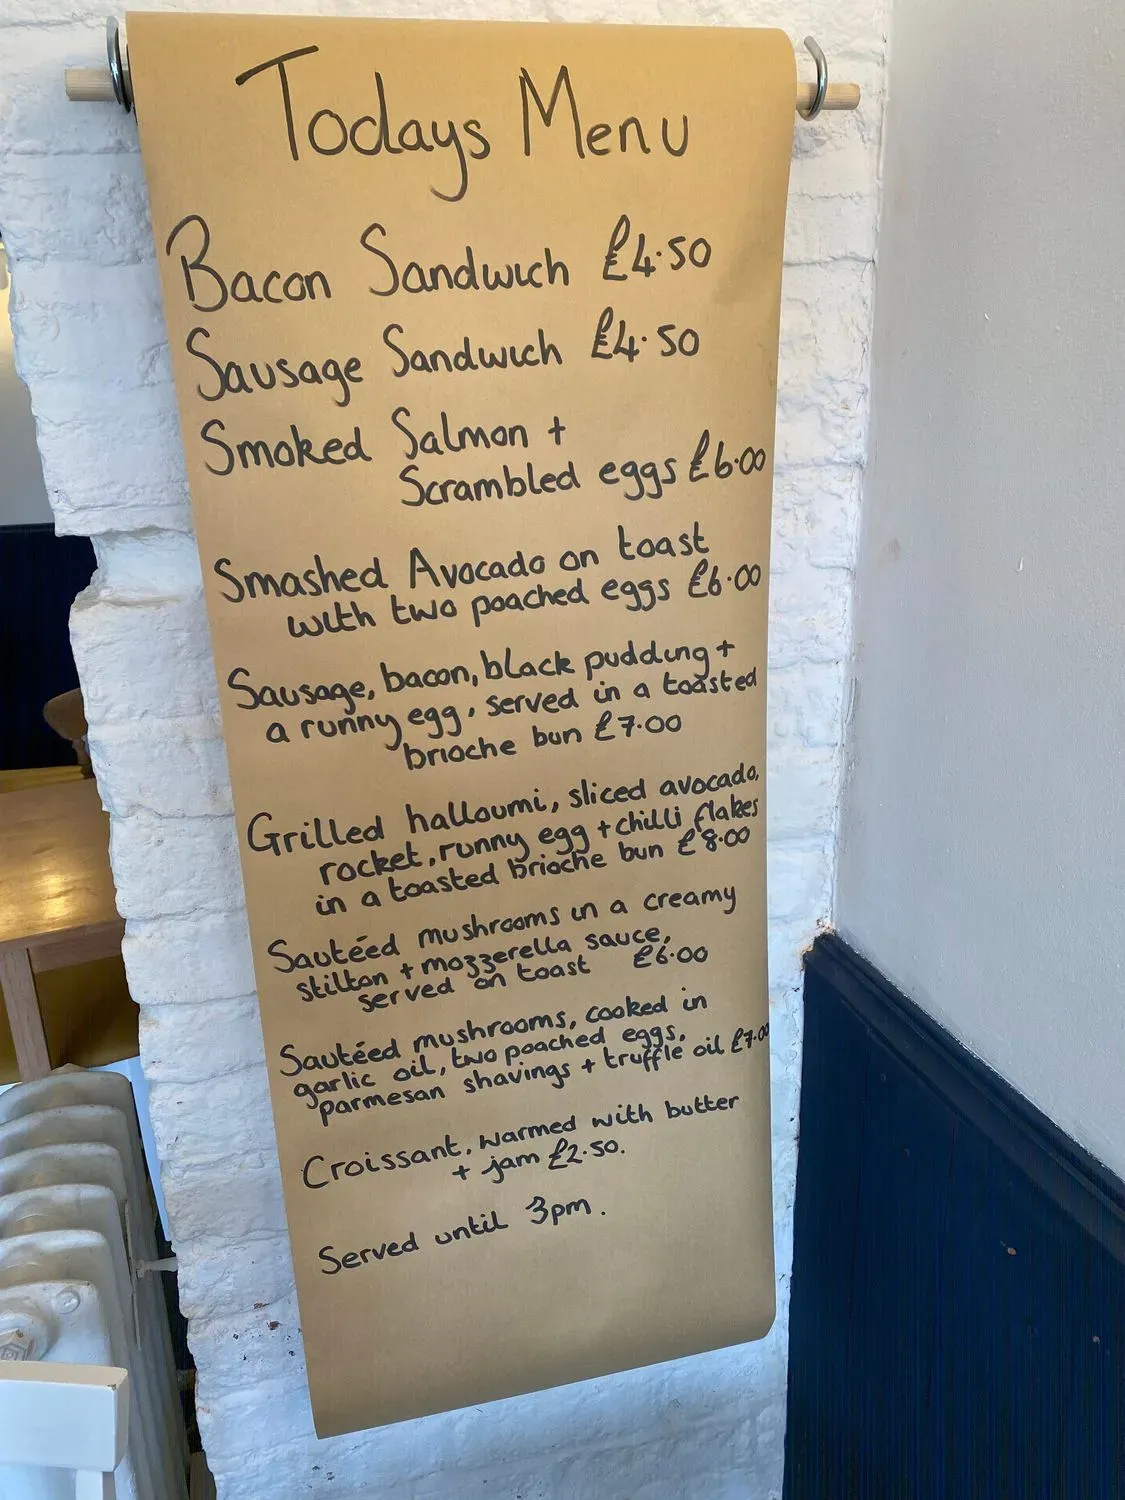 Todays Menu
Bacon Sandwich £4.50
Sausage Sandwich £4.50
Smoked Salmon +
Scrambled eggs £6.00
Smashed Avocado on toast
with two poached eggs £6.00
Sausage, bacon, black pudding +
a runny egg, served in a toasted
brioche bun £7.00
Grilled halloumi, sliced avocado,
rocket, runny egg + chilli flakes
in a toasted brioche bun £8.00
Sautéed mushrooms in a creamy
stilton + mozzerella sauce,
served on toast £6.00
Sautéed mushrooms, cooked in
garlic oil, two poached eggs,
parmesan shavings + truffle oil £7.00
Croissant, warmed with butter
+ jam £2.50.
Served until 3pm.